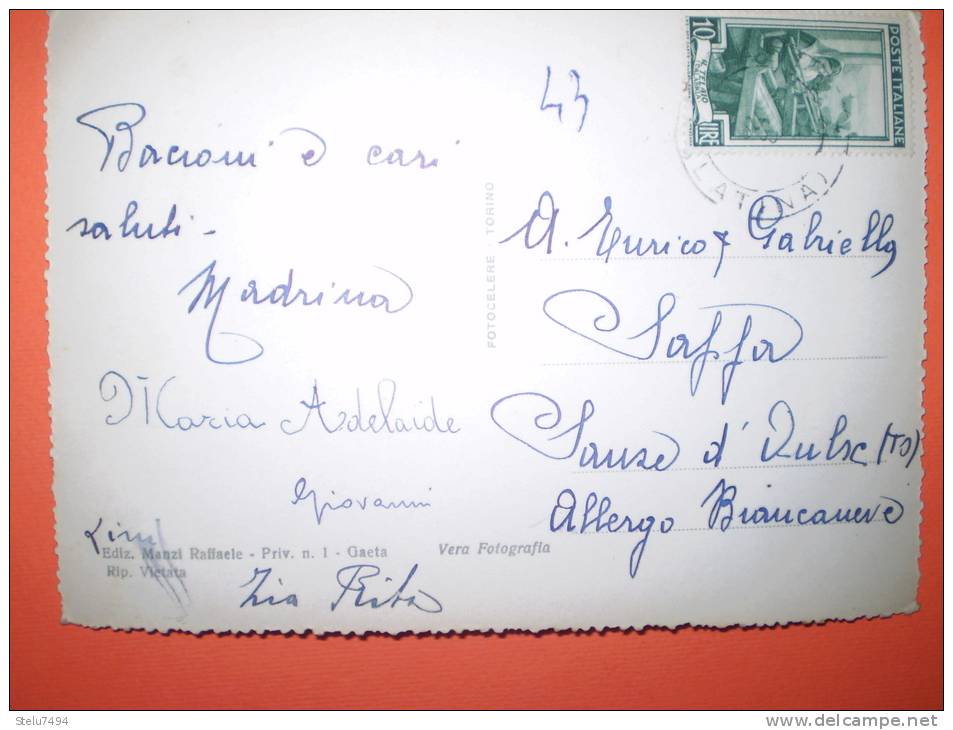 Bacioni e cari
saluti -
Madrina
Maria Adelaide
Giovanni
Zia Rita
Ediz. Manzi Raffaele - Priv. n. 1 - Gaeta
Rip. Vietata
Vera Fotografia
FOTOCELERE - TORINO
43
10
LIRE
POSTE ITALIANE
IL TELAIO
(LATINA)
A. Enrico e Gabriella
Saffa
Sauze d'Oulx (TO)
Albergo Biancaneve
Stelu7494
www.delcampe.net